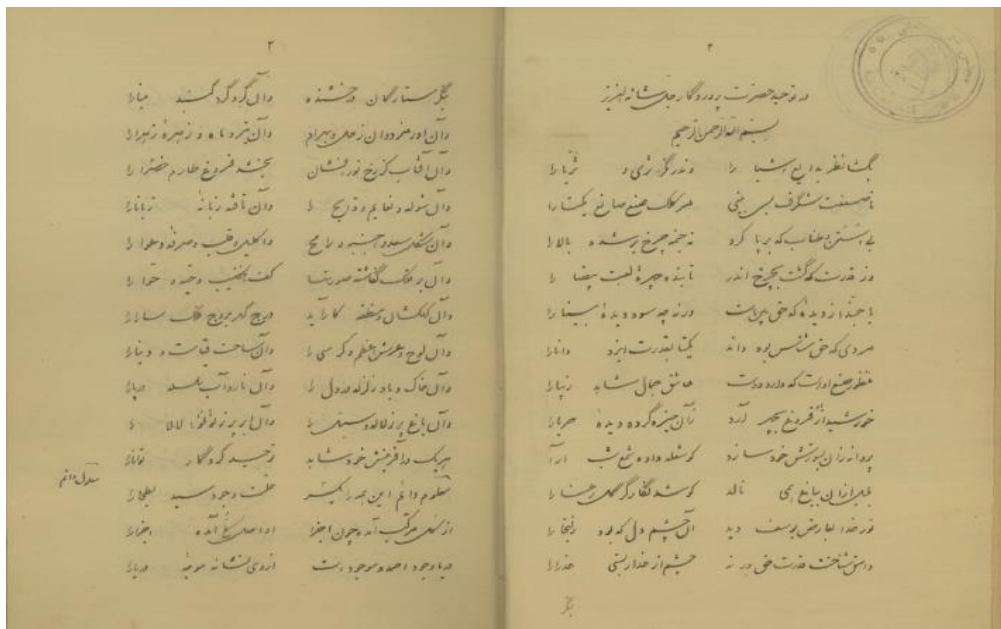 ۲
در توحید حضرت پروردگار جل شانه العزیز
بسم الله الرحمن الرحیم
بگشا نظر بدایع اشیا را وندر نگر ثری و ثریا را
تا صنعت شگرف بسی بینی هر کلک صنع صانع یکتا را
بی استن و طناب که برپا کرد نه خیمه چرخ برشده بالا را
وز قدرت که گشت بچرخ اندر تابنده چهره لعبت بیضا را
یا حبذا ز دیده که حق بین است ورنه چه سود دیده بینا را
مردی که حق شناس بود داند یکتا بقدرت ایزد دانا را
منظور صنع اوست که دارد دوست عاشق جمال شاهد زیبا را
خورشید از فروغ بچهر آرد زان خیره کرده دیده حربا را
پروانه زان بسوزش خود سازد کو شعله داده شمع شب آرا
بلبل ازان بباغ همی نالد کو شد نگارگر گل رعنا را
نور خدا بعارض یوسف دید آن چشم دل که بود زلیخا را
وامق شناخت قدرت حق ور نه چشم از خدا ببستی عذرا را
۳
بنگر ستارگان درخشنده وان گرد گرد گنبد مینا را
وان اورمزد وان زحل و بهرام وان تیر و ماه و زهره زهرا را
وان آفتاب کز رخ نورافشان بخشد فروغ طارم خضرا را
وان شوله و نعایم و ذریح را وان تافته زبانه زبانا را
وان شکل سعد و جبهه و رامح واکلیل و قلب و صرفه و عوا را
وان بر فلک گذاشته صورتها کف الخضیب و حیه و حوا را
وان کهکشان و منطقه کاراید درج گهر بروج فلک سا را
وان لوح و عرش اعظم و کرسی را وان ساحت قیامت و دنیا را
وان خاک و باد و زلزله را وان نار و آب
وان باغ پر ز لاله و سنبل را وان ابر پر ز لؤلؤ لالا را
هر یک در آفرینش خود شاهد توحید کردگار توانا را
معلوم دانم این همه را یکسر علت وجود سید بطحا را
از کل مرکب آمده چون اجزا او اصل کل آمده اجزا را
دریا وجود احمد و موجود است از وی نشانه موجه دریا را